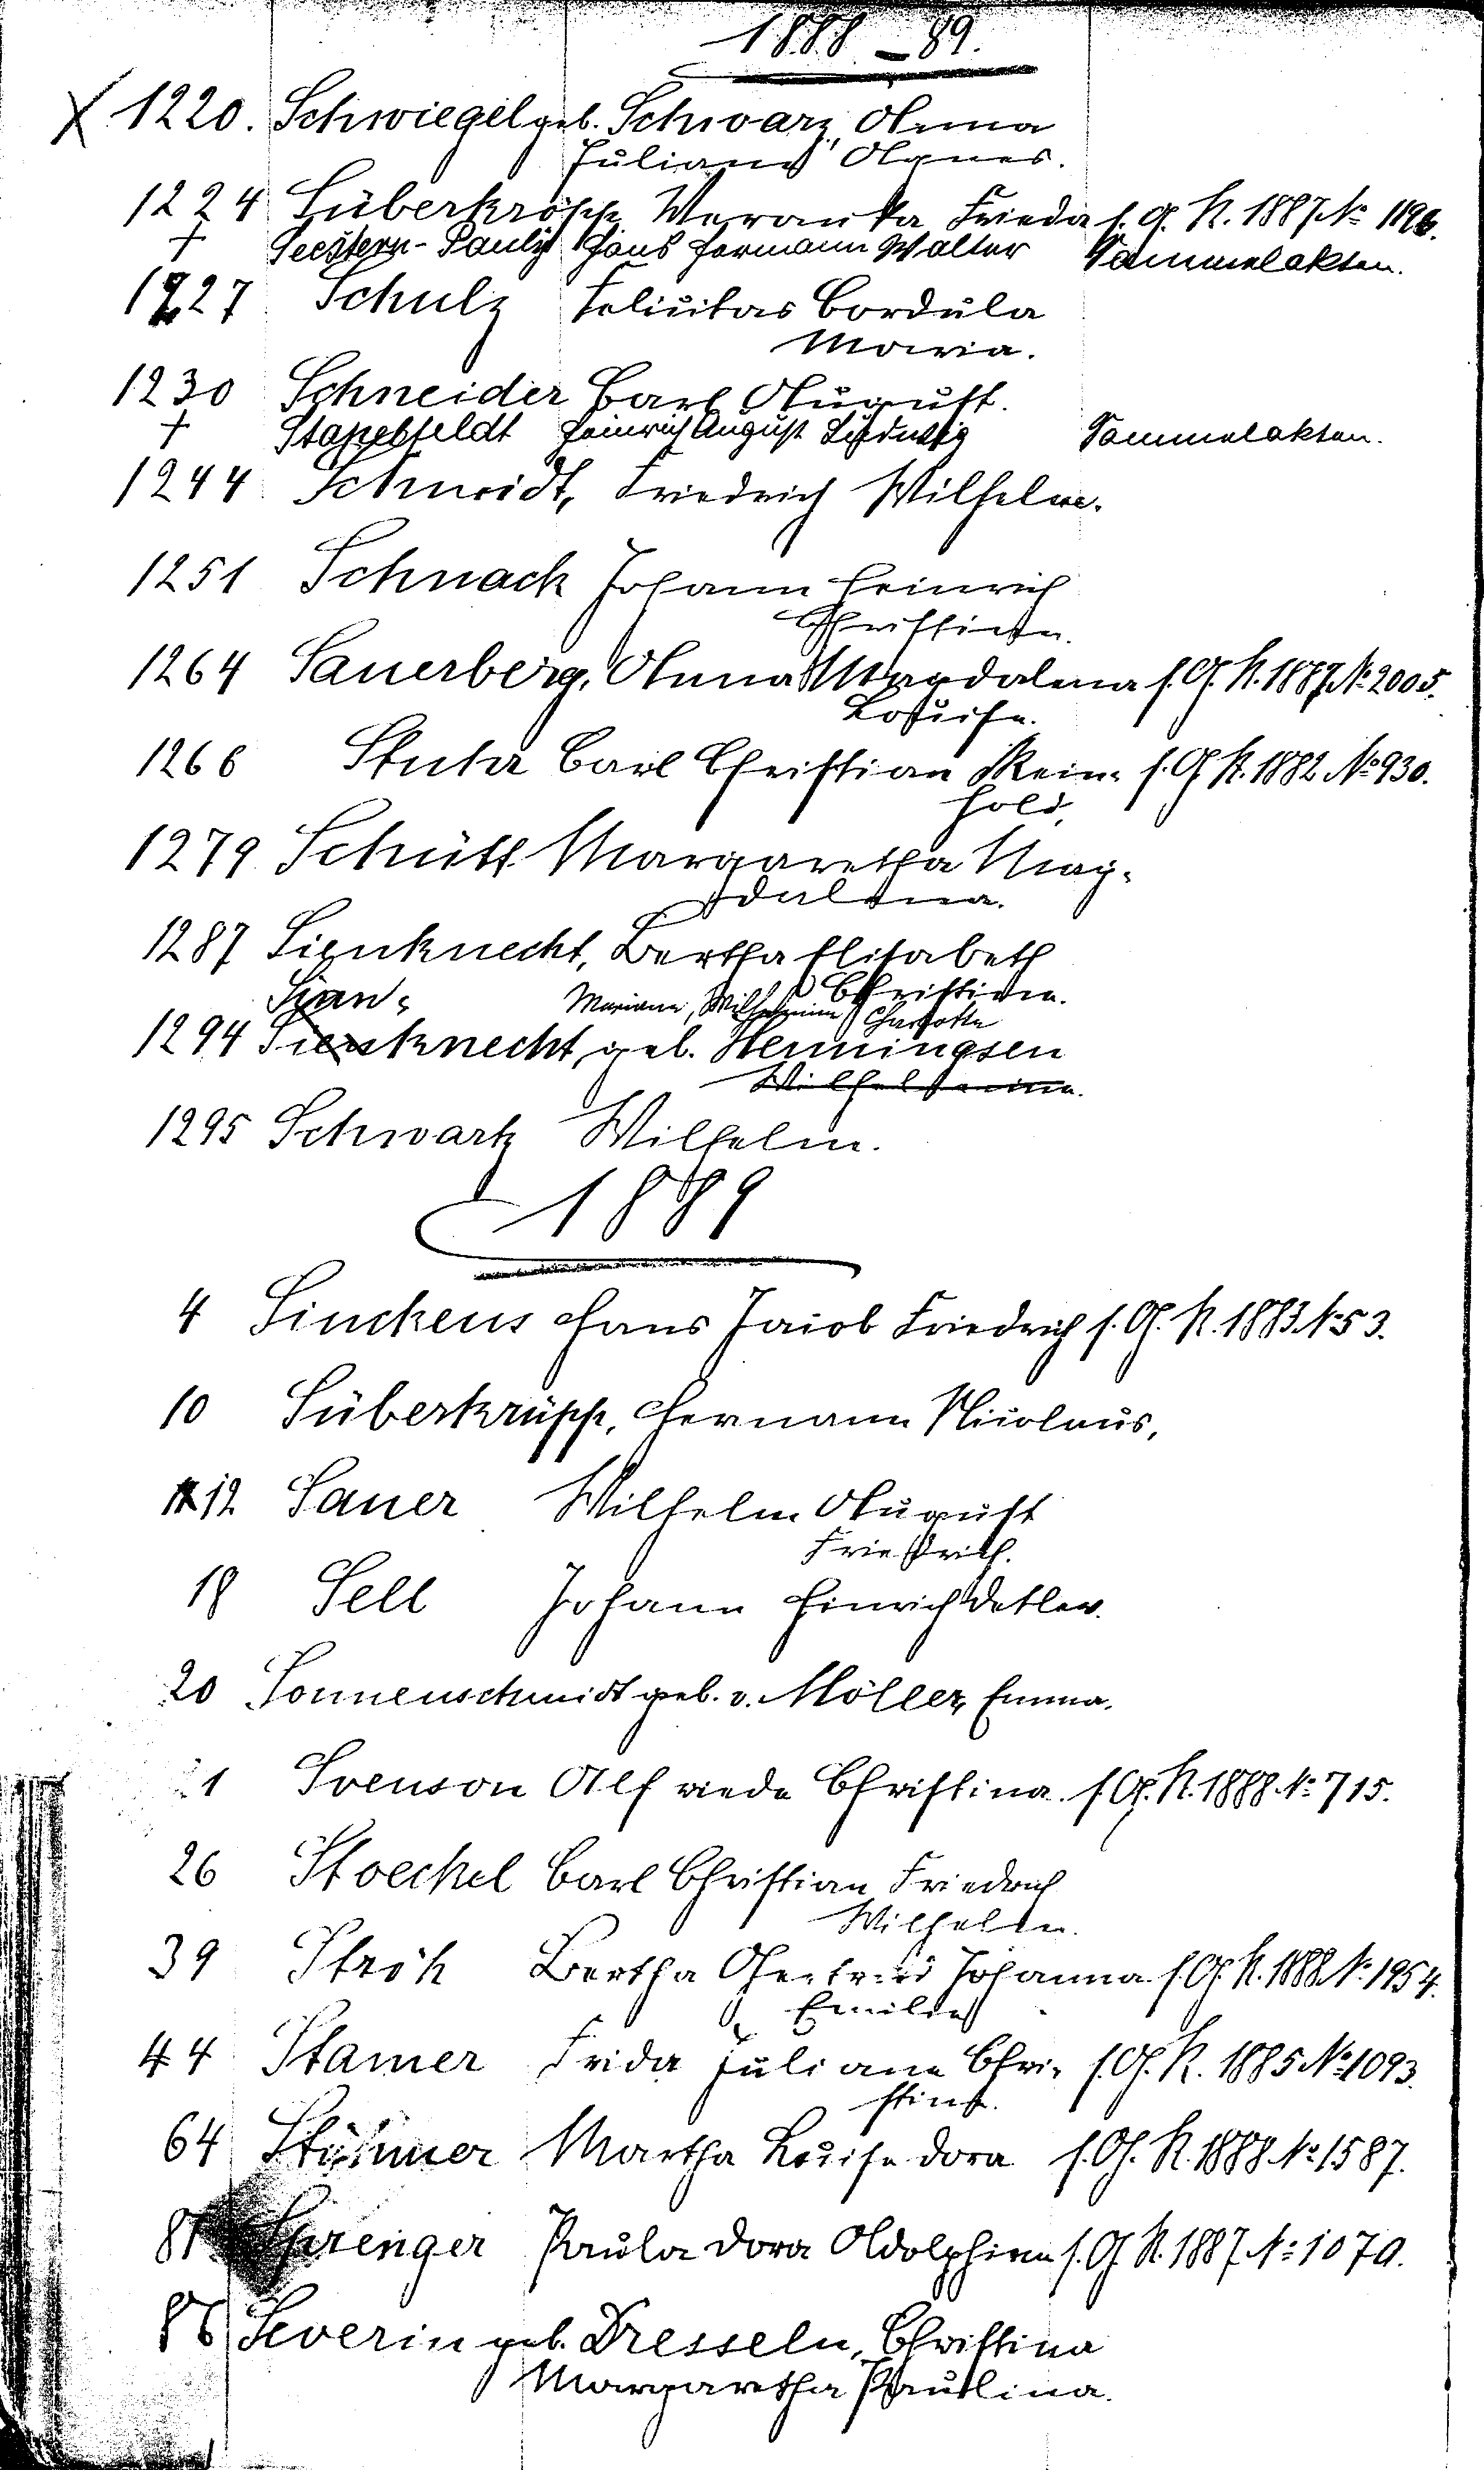 1888 – 89.
X 1220. Schwiegel geb. Schwarz, Anna
Juliane Agnes.
1224 Lüberkröpp, Veranika Frieda s. G. R. 1887 № 1196.
† Seestern-Pauly Hans Hermann Walter Sammelakten.
1227 Schulz Felicitas Cordula
Maria.
1230 Schneider Carl August.
† Stapelfeldt Heinrich August Ludwig Sammelakten.
1244 Schmidt, Friedrich Wilhelm.
1251 Schnack Johann Heinrich
Christian.
1264 Sauerberg, Anna Magdalena s. G. R. 1887 № 2005.
Louise.
1266 Stuhr Carl Christian Rein- s. G. R. 1882 № 930.
hold.
1279 Schütt Margaretha Mag-
dalena.
1287 Sienknecht, Bertha Elisabeth
Christina.
Sien- Mariane, Wilhelmine Charlotte
1294 Sienknecht, geb. Henningsen
Wilhelmina.
1295 Schwartz Wilhelm.
1889
4 Sinckens Hans Jacob Friedrich s. G. R. 1883 № 53.
10 Süberkrüpp, Hermann Nicolaus,
12 Sauer Wilhelm August
Friedrich.
18 Sell Johann Hinrich Detlev.
20 Sonnenschmidt geb. v. Möller, Emma.
21 Svenson Alfriede Christina s. G. R. 1888 № 715.
26 Stoeckel Carl Christian Friedrich
Wilhelm.
39 Ströh Bertha Gertrud Johanna s. G. R. 1888 № 1954.
Emilie
44 Stamer Frida Juliane Chri- s. G. R. 1885 № 1093.
stine.
64 Stühmer Martha Louise Dora s. G. R. 1888 № 1587.
81 Sprenger Paula Dora Adolphine s. G. R. 1887 № 1070.
86 Severin geb. Dresseln, Christina
Margaretha Paulina.